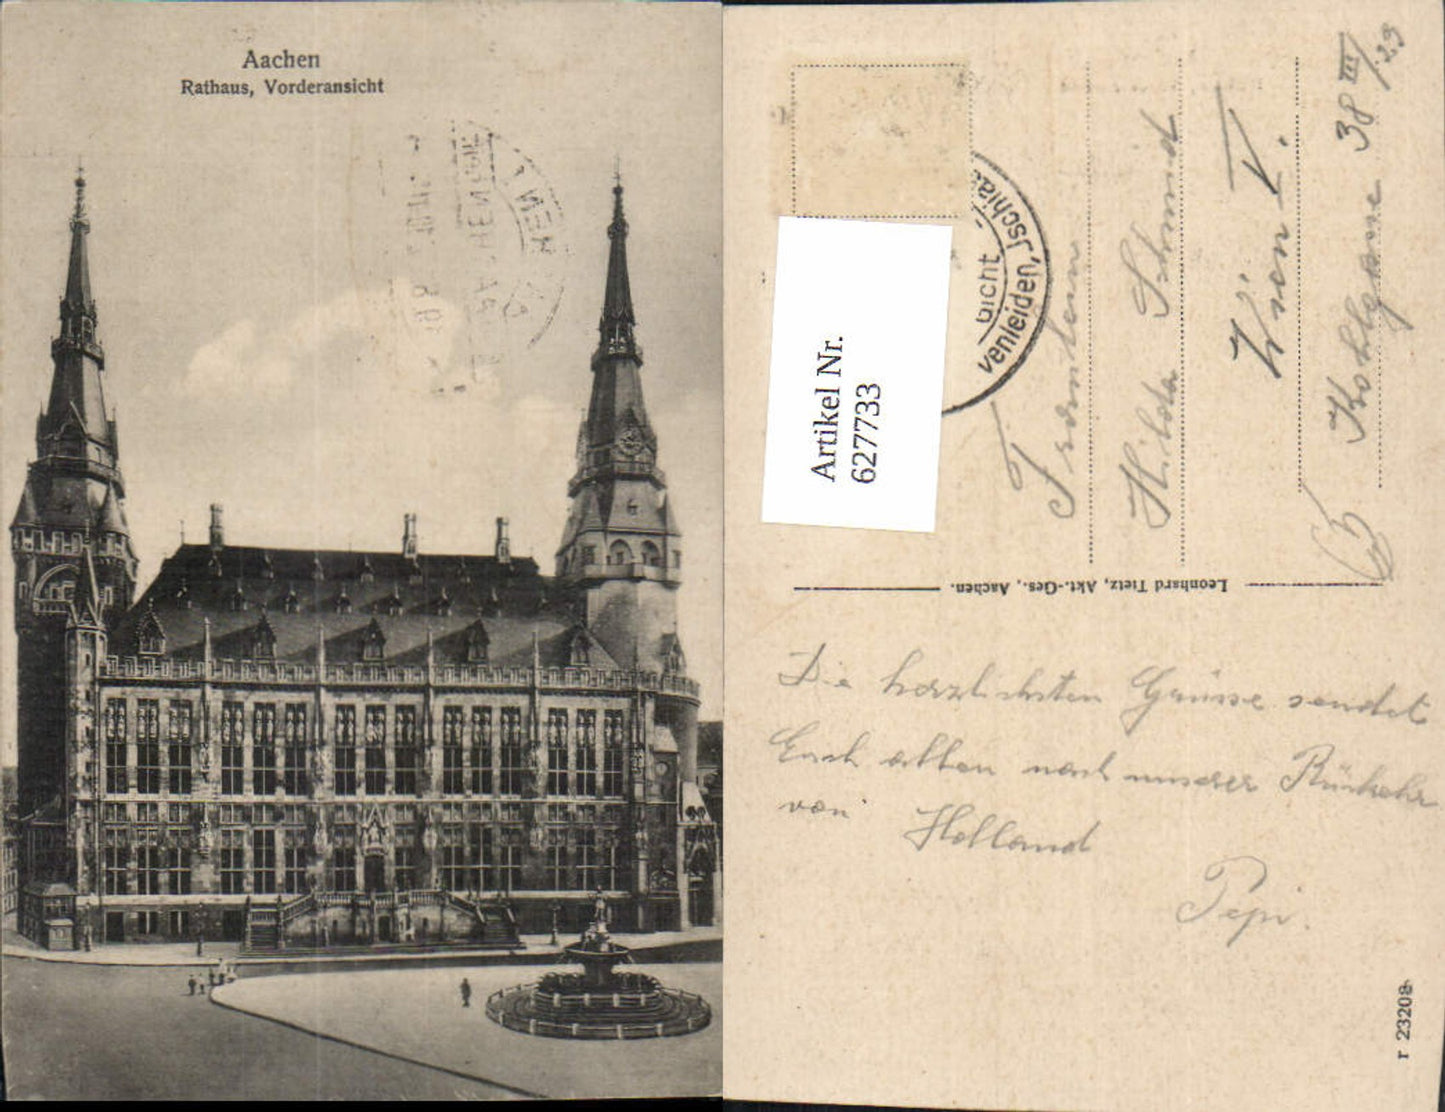 Aachen
Rathaus, Vorderansicht
Artikel Nr.
627733
venleiden, Ischias
Gicht
Fräulein
Hilda Schmid
Wien V.
Kohlgasse 38 III/23
Leonhard Tietz, Akt.-Ges., Aachen.
Die herzlichsten Grüsse sendet
Euch allen nach unserer Rückkehr
von Holland
Pepi.
r 23208